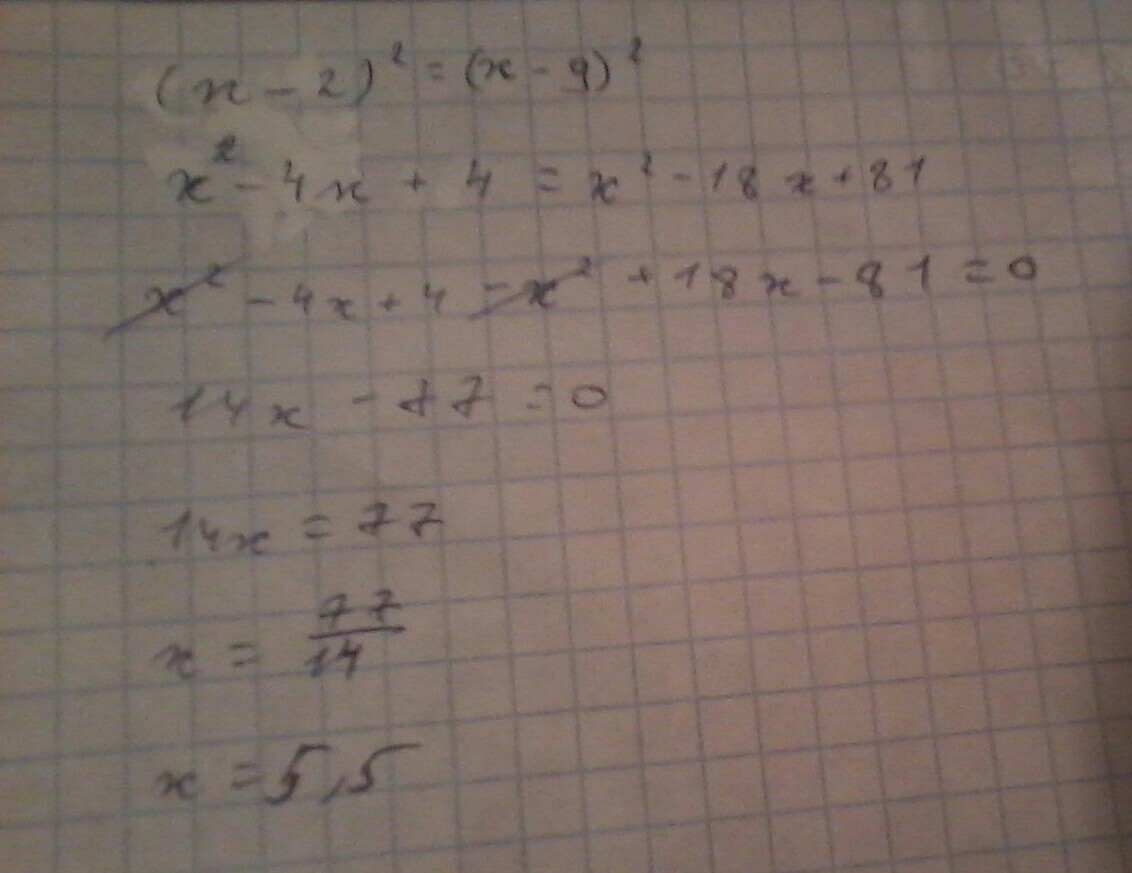 (x - 2)² = (x - 9)²
x² - 4x + 4 = x² - 18x + 81
x² - 4x + 4 - x² + 18x - 81 = 0
14x - 77 = 0
14x = 77
x = 77/14
x = 5,5